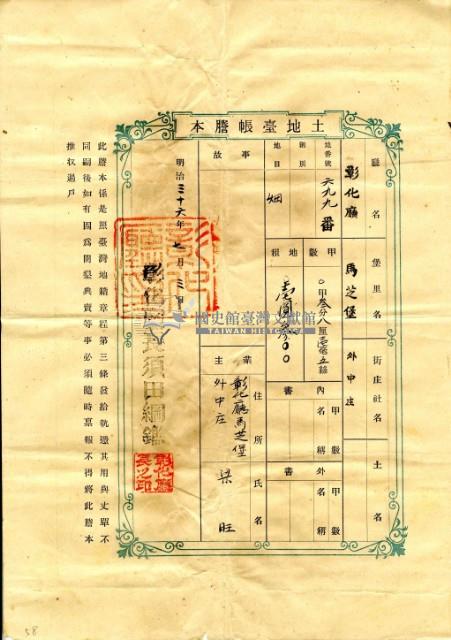 土地臺帳謄本
廳名
彰化廳
堡里名
馬芝堡
街庄社名
外中庄
土名
地番號
六九九番
則別
地目
畑
甲數
地租
內書
甲數
名稱
外書
甲數
名稱
事故
業主
住所
彰化廳馬芝堡
外中庄
氏名
梁旺
明治三十六年七月三日
彰化廳長須田綱鑑
彰化廳長之印
此謄本係是照臺灣地籍章程第三條發給執還其用與丈單不
同嗣後如有因爲開墾典賣等事必須隨時稟報不得將此謄本
推收過戶
國史館臺灣文獻館
TAIWAN HISTORICA
58